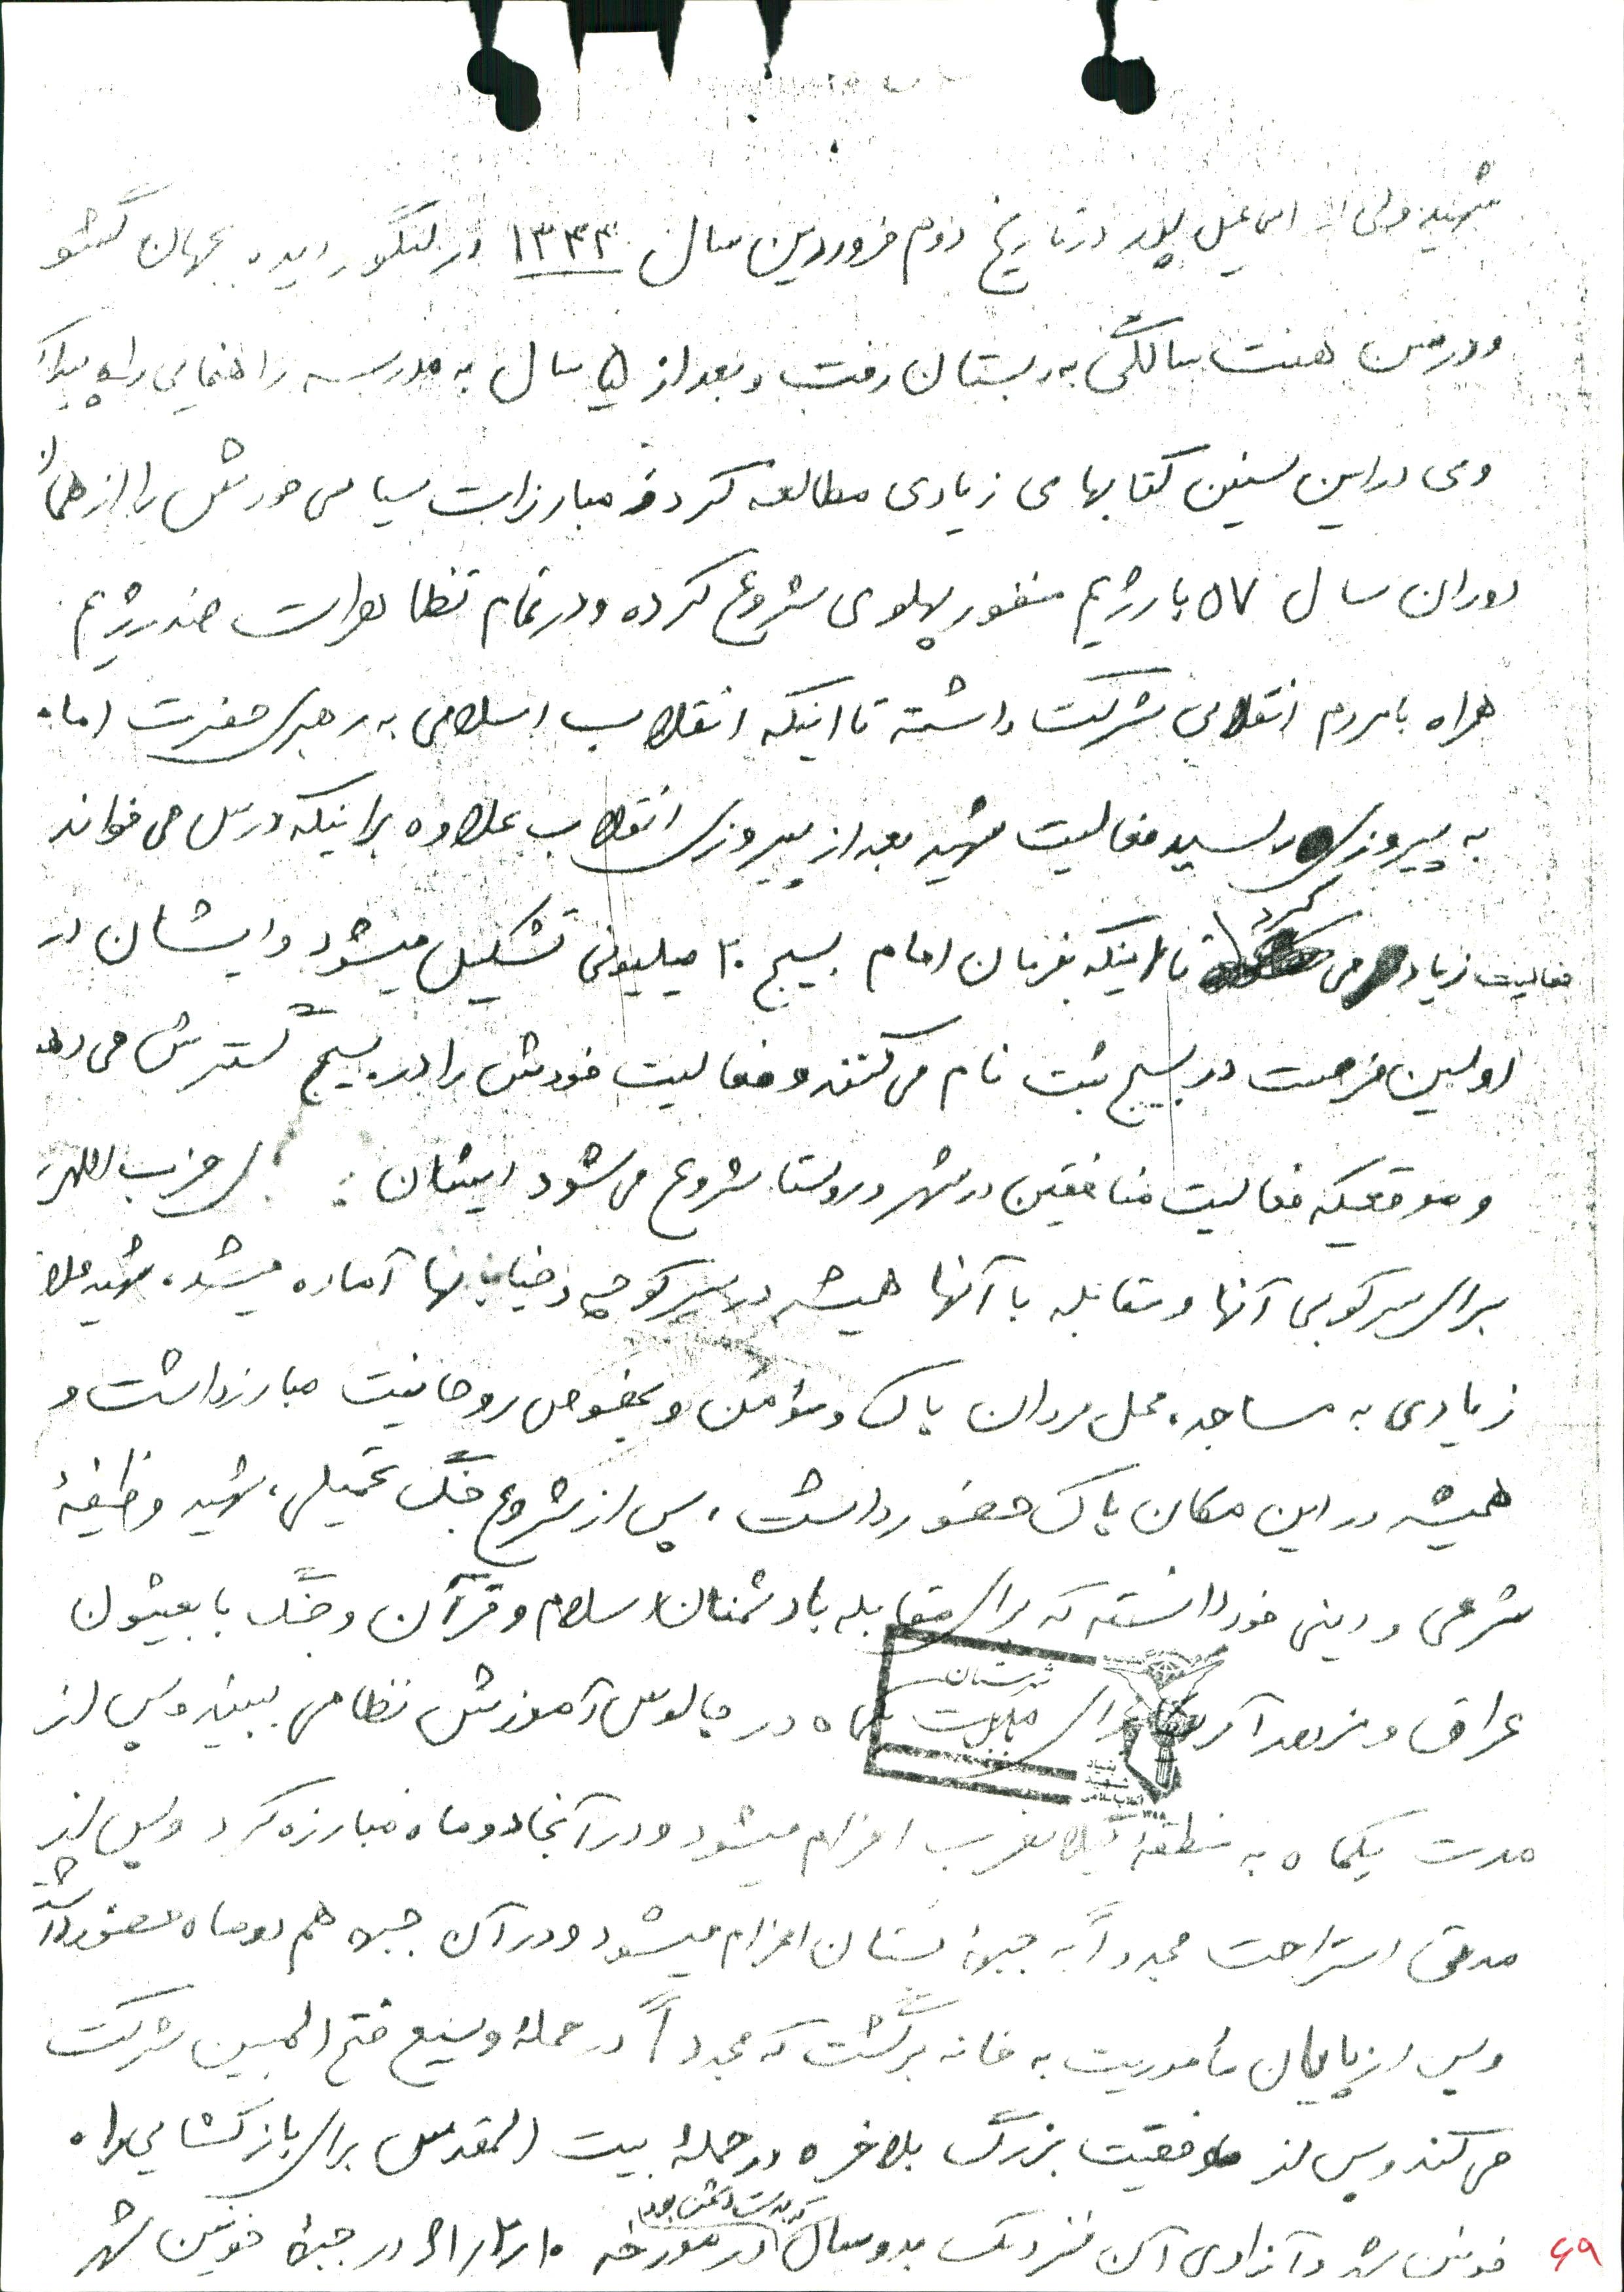 شهید ولی اسماعیل پور در تاریخ دوم فروردین سال ۱۳۴۳ در لنگور دیده بجهان گشو
و در سن هفت سالگی به دبستان رفت و بعد از ۵ سال به مدرسه راهنمایی راه پیدا
وی در این سنین کتابهای زیادی مطالعه کرد و مبارزات سیاسی خودش را از همان
دوران سال ۵۷ با رژیم منفور پهلوی شروع کرده و در تمام تظاهرات ضد رژیم
همراه با مردم انقلابی شرکت داشته تا اینکه انقلاب اسلامی به رهبری حضرت امام
به پیروزی رسید فعالیت شهید بعد از پیروزی انقلاب علاوه براینکه درس می خواند
فعالیت زیاد می کرد تا اینکه بفرمان امام بسیج ۲۰ میلیونی تشکیل میشود و ایشان در
اولین فرصت در بسیج ثبت نام می کنند و فعالیت خودش را در بسیج گسترش می دهد
و موقعیکه فعالیت منافقین در شهر و روستا شروع می شود ایشان حزب اللهی
برای سرکوبی آنها و مقابله با آنها همیشه در سر کوچه و خیابانها آماده میشد، شهید علا
زیادی به مساجد، محل مردان پاک و مؤمن و بخصوص روحانیت مبارز داشت و
همیشه در این مکان پاک حضور داشت، پس از شروع جنگ تحمیلی، شهید وظیفهٔ
شرعی و دینی خود دانسته که برای مقابله با دشمنان اسلام و قرآن و جنگ با بعثیون
عراق و مزدور آمریکا در چالوس آموزش نظامی ببیند و پس از
مدت یکماه به منطقهٔ گیلانغرب اعزام میشود و در آنجا دو ماه مبارزه کرد و پس از
مدتی استراحت مجدداً به جبههٔ بستان اعزام میشود و در آن جبهه هم دو ماه حضور داشت
و پس از پایان مأموریت به خانه برگشت که مجدداً در حملهٔ وسیع فتح المبین شرکت
می کند و پس از موفقیت بزرگ بلاخره در حملهٔ بیت المقدس برای بازگشایی راه
خونین شهر و آزادی آن نزدیک بدوسال که بدست دشمن بود در مورخه ۱۰ر۲ر۶۱ در جبههٔ خونین شهر
شهرستان
بنیاد شهید انقلاب اسلامی
۶۹